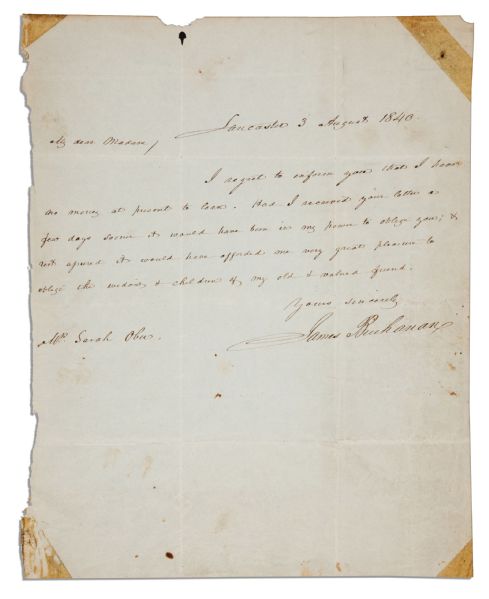 Lancaster 3 August 1840.
My dear Madam,
I regret to inform you that I have
no money at present to loan. Had I received your letter a
few days sooner it would have been in my power to oblige you; &
rest assured it would have afforded me very great pleasure to
oblige the widow & children of my old & valued friend.
Yours sincerely
James Buchanan
Mrs Sarah